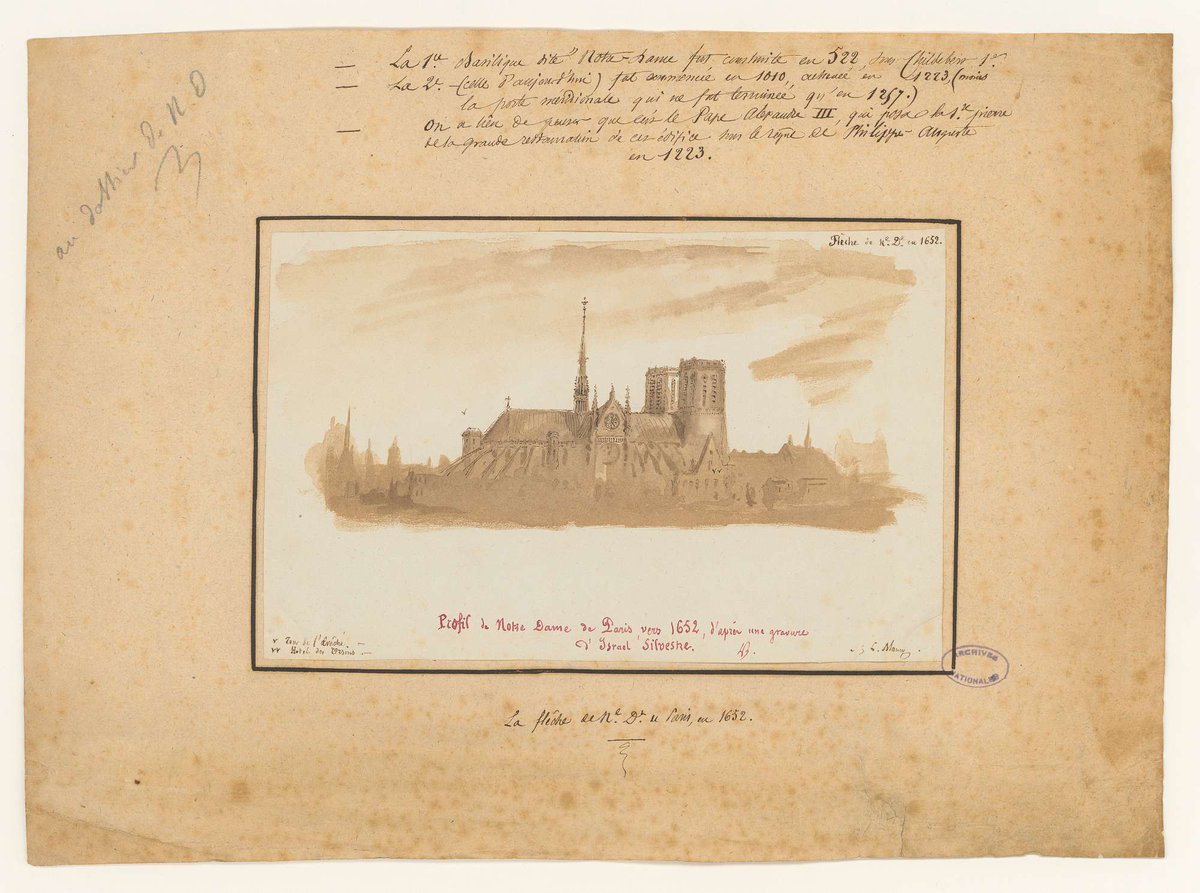 — La 1re Basilique dite Notre-Dame fut construite en 522, sous Childebert 1er
— La 2e (celle d'aujourd'hui) fut commencée en 1010, achevée en 1223, (moins
la porte méridionale qui ne fut terminée qu'en 1257.)
— On a lieu de penser que c'est le Pape Alexandre III, qui posa la 1re pierre
de la grande restauration de cet édifice sous le règne de Philippe-Auguste
en 1223.
au dossier de N. D
Flèche de Ne. De. en 1652.
Profil de Notre Dame de Paris vers 1652, d'après une gravure
d'Israël Silvestre.
v Tour de l'Évêché. —
vv Hotel des Ursins. —
ARCHIVES
NATIONALES
La flèche de Ne. De. de Paris, en 1652.